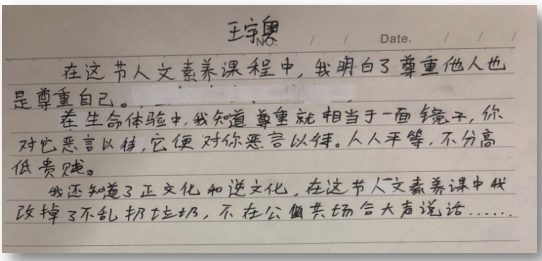 王宇
NO.   /   /   Date.   /   /   /
在这节人文素养课程中，我明白了尊重他人也
是尊重自己。
在生命体验中，我知道尊重就相当于一面镜子，你
对它恶言以待，它便对你恶言以待。人人平等，不分高
低贵贱。
我还知道了正文化和逆文化，在这节人文素养课中我
改掉了不乱扔垃圾，不在公共场合大声说话……